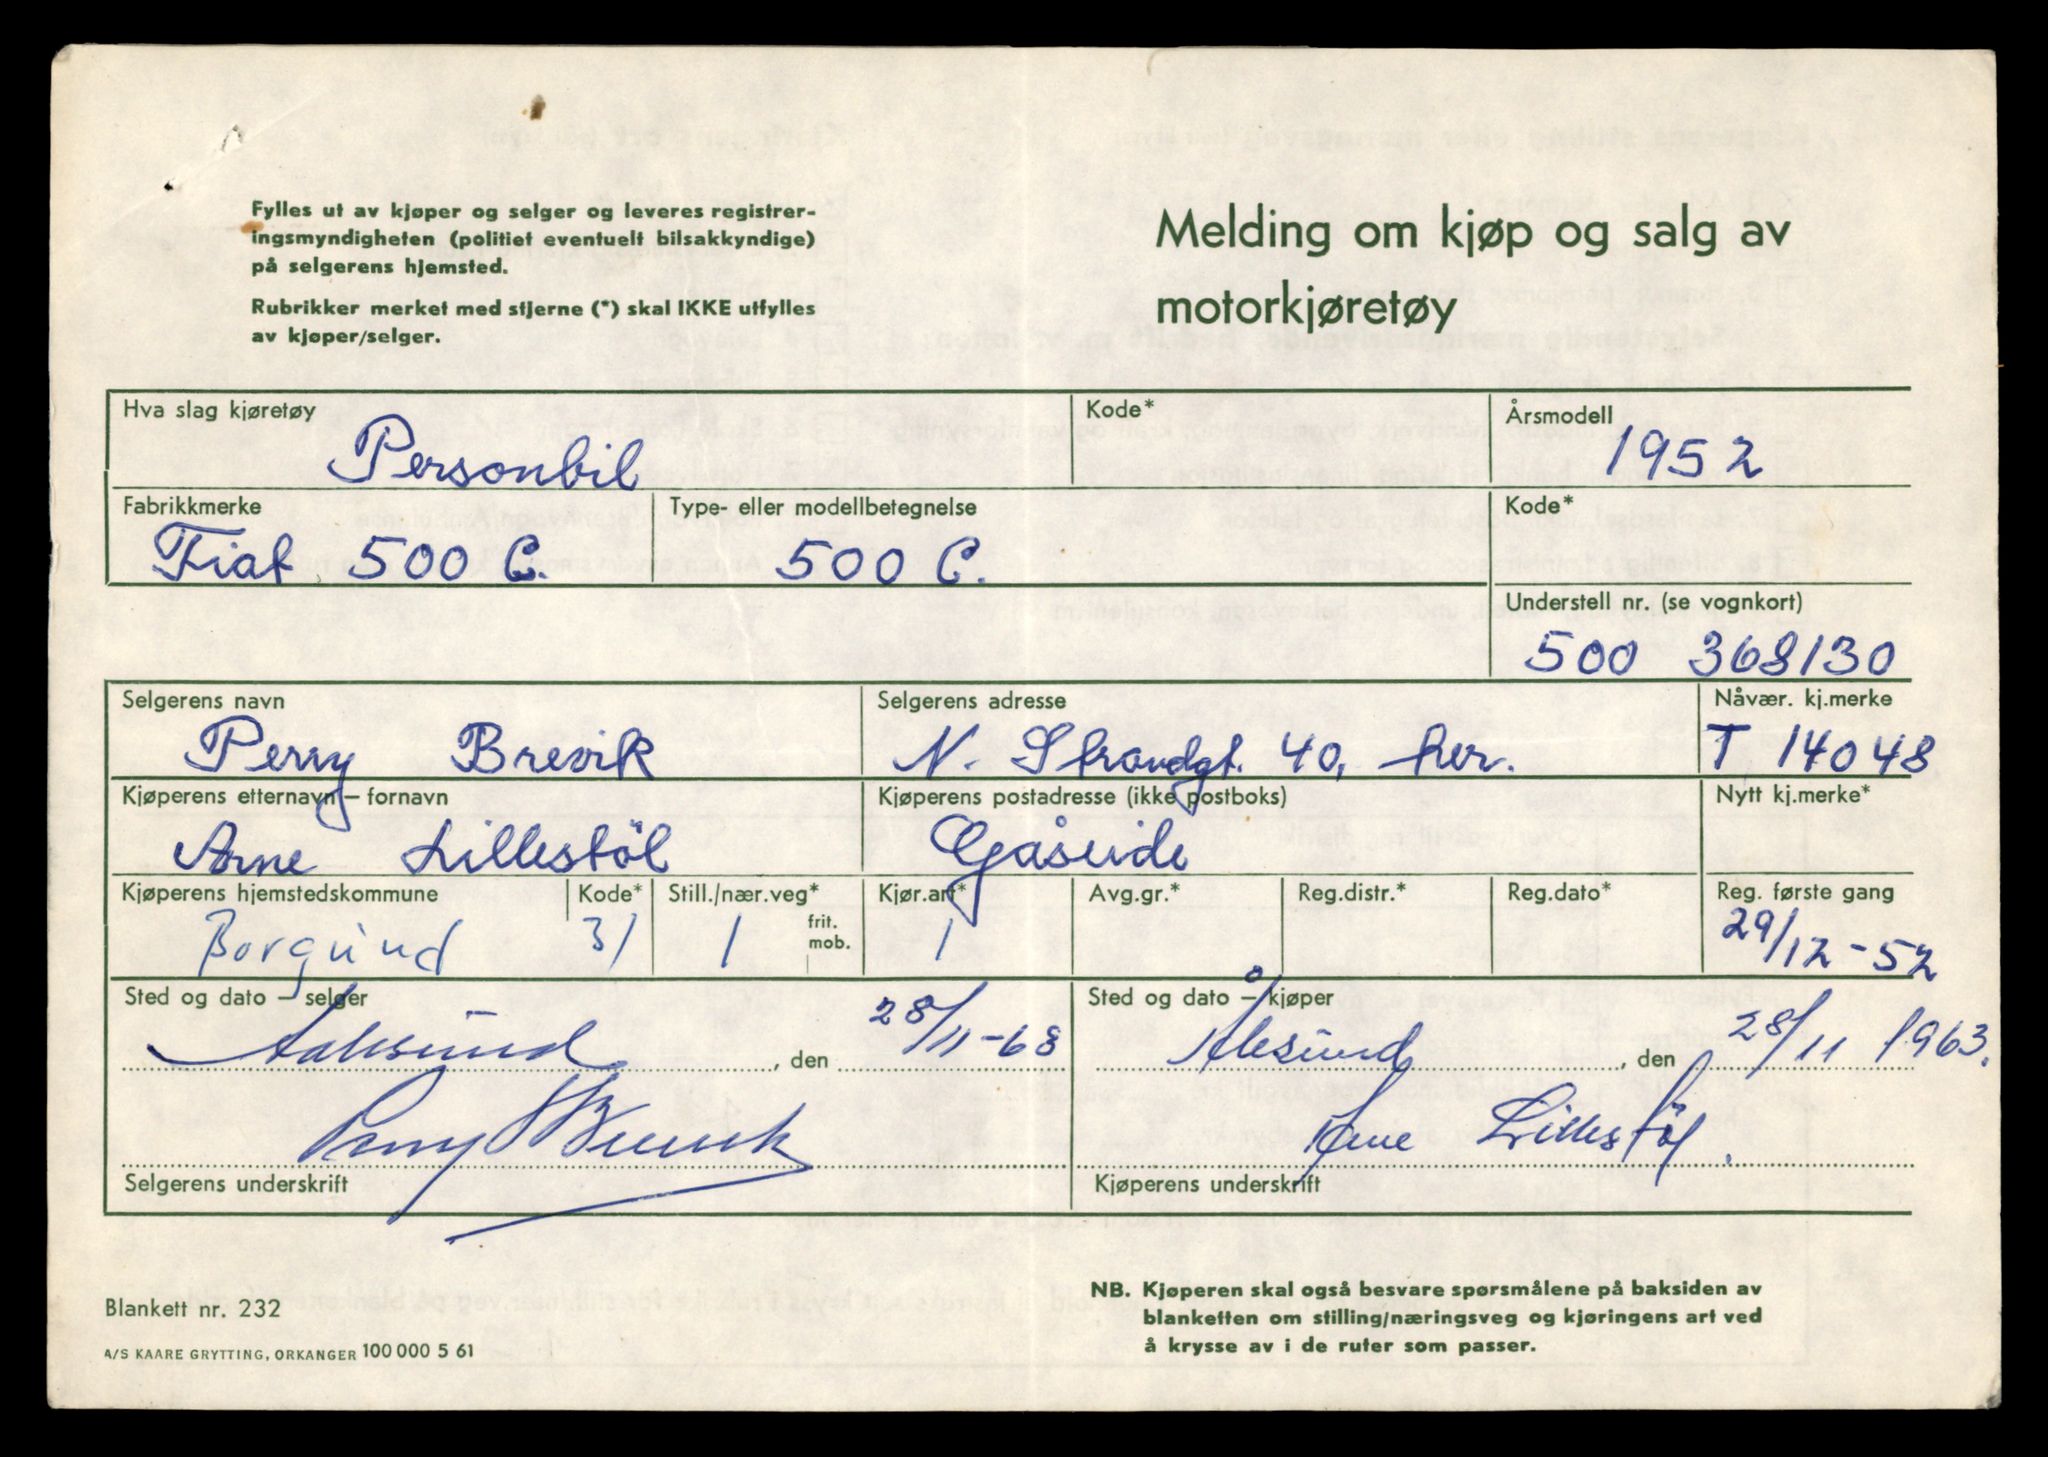 Fylles ut av kjøper og selger og leveres registrer-
ingsmyndigheten (politiet eventuelt bilsakkyndige)
på selgerens hjemsted.
Rubrikker merket med stjerne (*) skal IKKE utfylles
av kjøper/selger.
Melding om kjøp og salg av
motorkjøretøy
Hva slag kjøretøy
Personbil
Kode*
Årsmodell
1952
Fabrikkmerke
Fiat 500 C.
Type- eller modellbetegnelse
500 C.
Kode*
Understell nr. (se vognkort)
500 368130
Selgerens navn
Perry Brevik
Selgerens adresse
N. Strandgt. 40, her.
Nåvær. kj.merke
T 14048
Kjøperens etternavn – fornavn
Arne Lillestöl
Kjøperens postadresse (ikke postboks)
Gåseide
Nytt kj.merke*
Kjøperens hjemstedskommune
Borgund
Kode*
31
Still./nær.veg*
1
frit.
mob.
Kjør.art*
1
Avg.gr.*
Reg.distr.*
Reg.dato*
Reg. første gang
29/12-52
Sted og dato – selger
Aalesund, den 28/11-63
Sted og dato – kjøper
Ålesund, den 28/11 1963.
Perry Brevik
Arne Lillestöl.
Selgerens underskrift
Kjøperens underskrift
Blankett nr. 232
A/S KAARE GRYTTING, ORKANGER 100 000 5 61
NB. Kjøperen skal også besvare spørsmålene på baksiden av
blanketten om stilling/næringsveg og kjøringens art ved
å krysse av i de ruter som passer.